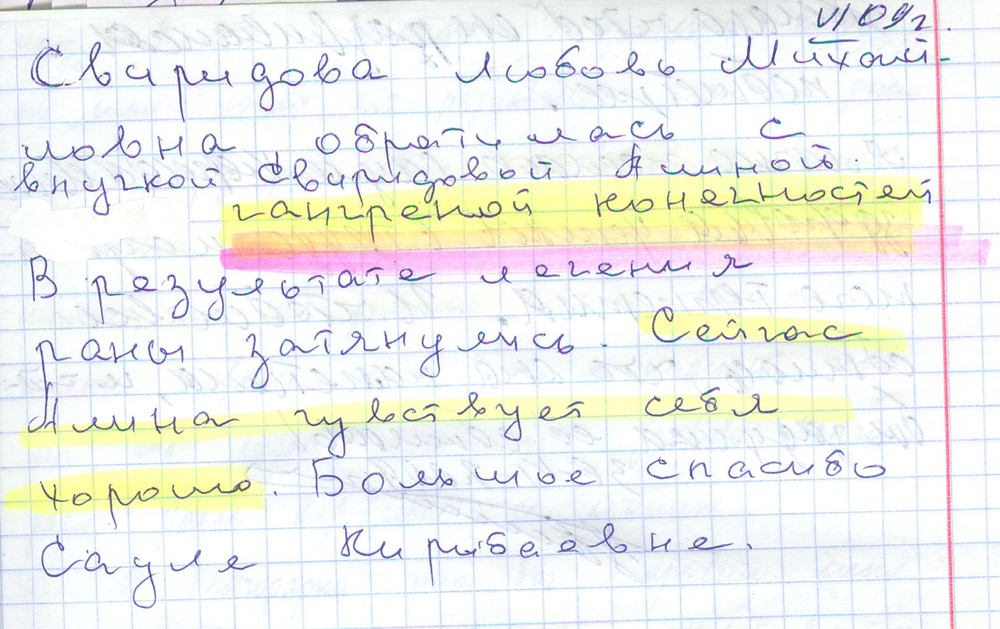 VI 09г.
Свиридова Любовь Михай-
ловна обратилась с
внучкой Свиридовой Алиной.
гангреной конечностей
В результате лечения
раны затянулись. Сейчас
Алина чувствует себя
хорошо. Большое спасибо
Сауле Кирибаевне.